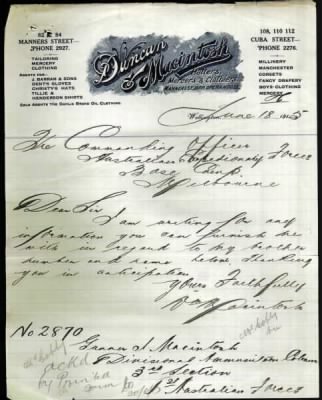 82 & 84
MANNERS STREET
'PHONE 2927.
TAILORING
MERCERY
CLOTHING
AGENTS FOR:
J. BARRAN & SONS
DENTS GLOVES
CHRISTY'S HATS
TILLIE &
HENDERSON SHIRTS
SOLE AGENTS THE DEVILS BRAND OIL CLOTHING
Duncan
& Macintosh
Hatters,
Mercers & Clothiers.
MANNERS ST. (OPP. OPERA HOUSE)
108, 110 112
CUBA STREET
'PHONE 2276.
MILLINERY
MANCHESTER
CORSETS
FANCY DRAPERY
BOYS CLOTHING
MERCERY
Wellington, June 18 1915
The Commanding Officer
Australian Expeditionary Forces
Base Camp
Melbourne
Dear Sir
I am writing for any
information you can furnish me
with in regard to my brother
number and name below. Thanking
you in anticipation
Yours Faithfully
Macintosh
No 2870
Gunner J. Macintosh
Divisional Ammunition Column
3rd Section
1st Australian Forces
ackd
by Printed
form